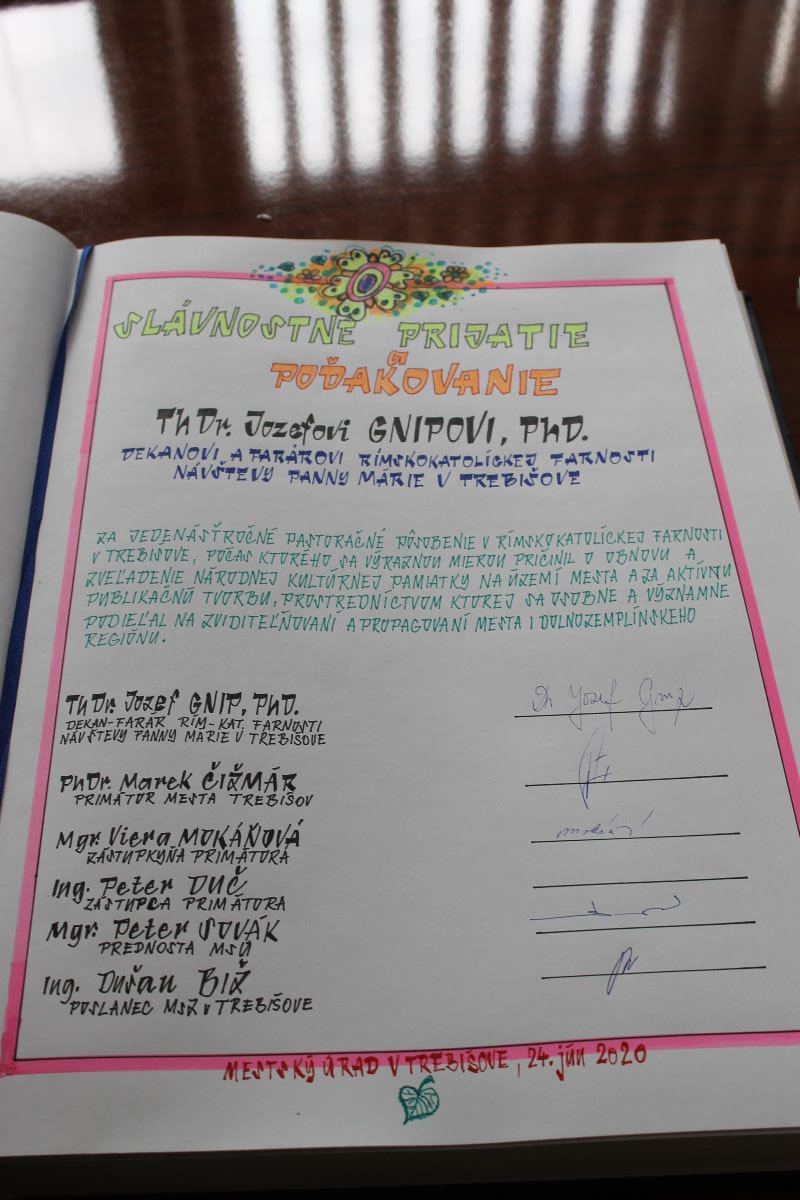 SLÁVNOSTNÉ PRIJATIE
a
POĎAKOVANIE
ThDr. Jozefovi GNIPOVI, PhD.
DEKANOVI A FARÁROVI RÍMSKOKATOLÍCKEJ FARNOSTI
NÁVŠTEVY PANNY MÁRIE V TREBIŠOVE
ZA JEDENÁSŤROČNÉ PASTORAČNÉ PÔSOBENIE V RÍMSKOKATOLÍCKEJ FARNOSTI
V TREBIŠOVE, POČAS KTORÉHO SA VÝRAZNOU MIEROU PRIČINIL O OBNOVU A
ZVEĽADENIE NÁRODNEJ KULTÚRNEJ PAMIATKY NA ÚZEMÍ MESTA A ZA AKTÍVNU
PUBLIKAČNÚ TVORBU, PROSTREDNÍCTVOM KTOREJ SA OSOBNE A VÝZNAMNE
PODIEĽAL NA ZVIDITEĽŇOVANÍ A PROPAGOVANÍ MESTA I DOLNOZEMPLÍNSKEHO
REGIÓNU.
ThDr. Jozef GNIP, PhD.
DEKAN-FARÁR RÍM-KAT. FARNOSTI
NÁVŠTEVY PANNY MÁRIE V TREBIŠOVE
PhDr. Marek ČIŽMÁR
PRIMÁTOR MESTA TREBIŠOV
Mgr. Viera MOKÁŇOVÁ
ZÁSTUPKYŇA PRIMÁTORA
Ing. Peter DUČ
ZÁSTUPCA PRIMÁTORA
Mgr. Peter SOVÁK
PREDNOSTA MSÚ
Ing. Dušan BIŽ
POSLANEC MSZ V TREBIŠOVE
MESTSKÝ ÚRAD V TREBIŠOVE, 24. jún 2020